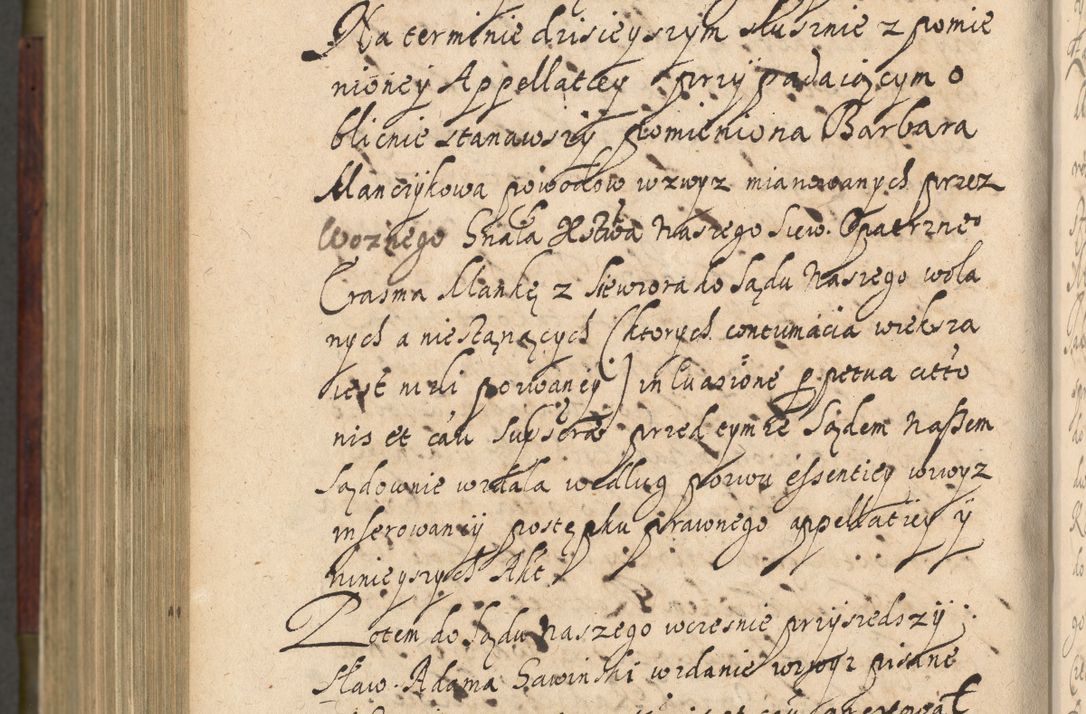 Na terminie dzisieyszym słusznie z pomie
nioney Appellatiey przypadaiącym o
blicnie stanąwszy pomieniona Barbara
Manczykowa powodow wzwyz mianowanych przez
Woznego Gnała Xstwa Naszego Siew. Opatrzne°
Erasma Mankę z Siewiora do Sądu Naszego woła
nych a niestaiących (ktorych contumacia wieksza
iest nizli pozwaney) in evasione ppetua actto
nis et cau supscrae przed tymze Sądem Naszem
Sądownie wzdała według pozwu essentiey wwyz
inserowaney postępku prawnego appellatiey y
ninieyszych Akt
Potem do Sądu Naszego wczesnie przyszedszy
Sław. Adama Gawinski wzdanie wzwyz pisane